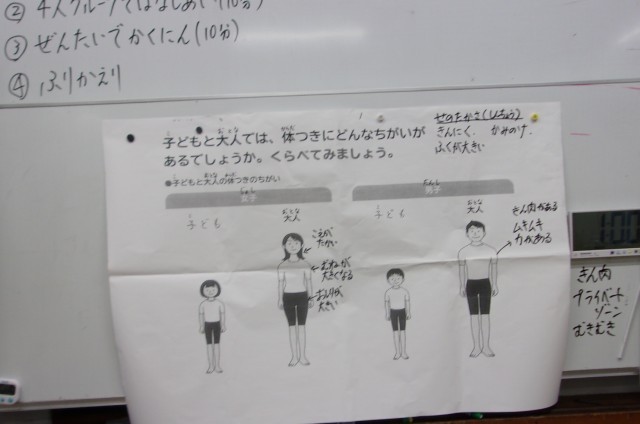 ② 4人グループではなしあい(10分)
③ ぜんたいでかくにん(10分)
④ ふりかえり
子どもと大人では、体つきにどんなちがいが
あるでしょうか。くらべてみましょう。
せのたかさ(しんちょう)
きんにく、かみのけ、
ふくが大きい
●子どもと大人の体つきのちがい
女子
子ども
大人
こえが
たかい
むねが
大きくなる
おしりが
大きい
男子
子ども
大人
きん肉がある
ムキムキ
力がある
きん肉
プライベート
ゾーン
むきむき